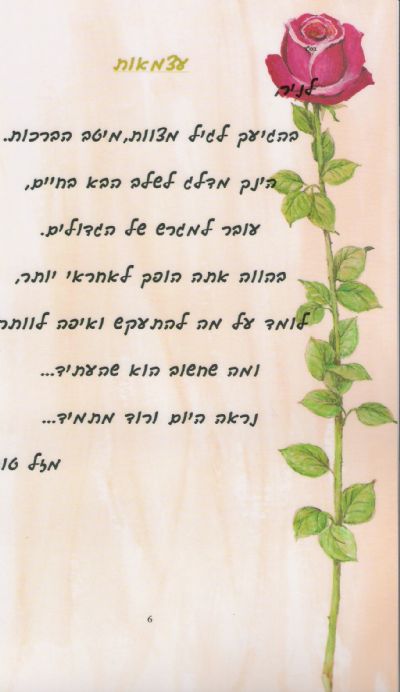 עצמאות
לניר,
בהגיעך לגיל מצוות,מיטב הברכות.
הינך מדלג לשלב הבא בחיים,
עובר למגרש של הגדולים.
בהווה אתה הופק לאחראי יותר,
לומד על מה להתעקש ואיפה לוותר
ומה שחשוב הוא שהעתיד...
נראה היום ורוד מתמיד...
מזל טו
6